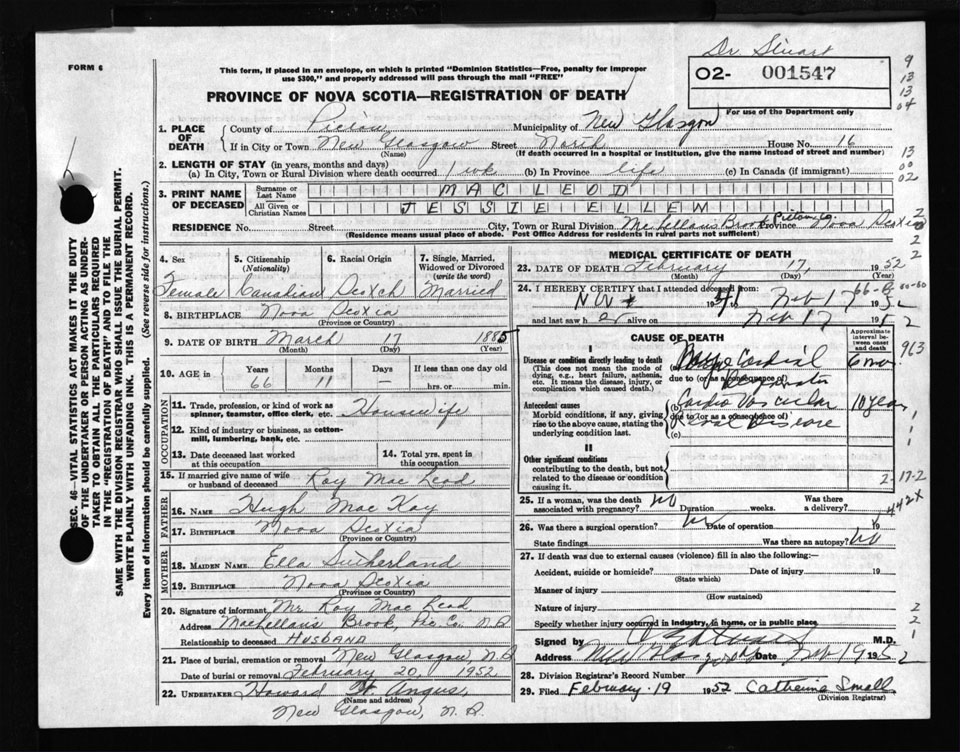 Dr. Stuart
FORM 6
This form, if placed in an envelope, on which is printed "Dominion Statistics—Free, penalty for improper
use $300," and properly addressed will pass through the mail "FREE"
02- 001547
9
13
13
04
PROVINCE OF NOVA SCOTIA—REGISTRATION OF DEATH
For use of the Department only
1. PLACE OF DEATH
County of Pictou Municipality of New Glasgow
If in City or Town New Glasgow Street March House No. 16
(Name) (If death occurred in a hospital or institution, give the name instead of street and number)
2. LENGTH OF STAY (in years, months and days)
(a) In City, Town or Rural Division where death occurred 1 wk (b) In Province life (c) In Canada (if immigrant)
13
00
02
3. PRINT NAME OF DECEASED
Surname or Last Name MAC LEOD
All Given or Christian Names JESSIE ELLEN
RESIDENCE No. Street City, Town or Rural Division McLellan's Brook Pictou Co. Province Nova Scotia
(Residence means usual place of abode. Post Office Address for residents in rural parts not sufficient)
2
2
2
SEC. 46—VITAL STATISTICS ACT MAKES IT THE DUTY
OF THE UNDERTAKER OR PERSON ACTING AS UNDER-
TAKER TO OBTAIN ALL THE PARTICULARS REQUIRED
IN THE "REGISTRATION OF DEATH" AND TO FILE THE
SAME WITH THE DIVISION REGISTRAR WHO SHALL ISSUE THE BURIAL PERMIT.
WRITE PLAINLY WITH UNFADING INK. THIS IS A PERMANENT RECORD.
Every item of information should be carefully supplied. (See reverse side for instructions.)
4. Sex 5. Citizenship (Nationality) 6. Racial Origin 7. Single, Married, Widowed or Divorced (write the word)
Female Canadian Scotch Married
8. BIRTHPLACE Nova Scotia
(Province or Country)
9. DATE OF BIRTH March 17 1885
(Month) (Day) (Year)
10. AGE in Years Months Days If less than one day old
66 11 — hrs. or min.
OCCUPATION
11. Trade, profession, or kind of work as
spinner, teamster, office clerk, etc. Housewife
12. Kind of industry or business, as cotton-
mill, lumbering, bank, etc.
13. Date deceased last worked
at this occupation
14. Total yrs. spent in
this occupation
15. If married give name of wife
or husband of deceased Roy Mac Leod
FATHER
16. NAME Hugh Mac Kay
17. BIRTHPLACE Nova Scotia
(Province or Country)
MOTHER
18. MAIDEN NAME Ella Sutherland
19. BIRTHPLACE Nova Scotia
(Province or Country)
20. Signature of informant Mr. Roy Mac Leod
Address MacLellan's Brook, Pic. Co. N.S.
Relationship to deceased HUSBAND
21. Place of burial, cremation or removal New Glasgow, N.S.
Date of burial or removal February 20, 1952
22. UNDERTAKER Howard H. Angus,
(Name and address)
New Glasgow, N.S.
MEDICAL CERTIFICATE OF DEATH
23. DATE OF DEATH February 17, 1952
(Month) (Day) (Year)
24. I HEREBY CERTIFY that I attended deceased from:
Nov 1941 Feb 17 1952
and last saw her alive on Feb 17 1952
CAUSE OF DEATH
Approximate interval between onset and death
Disease or condition directly leading to death
(This does not mean the mode of dying, e.g., heart failure, asthenia, etc. It means the disease, injury, or complication which caused death.)
(a) Cardial 6 mo
due to (or as a consequence of)
Antecedent causes
Morbid conditions, if any, giving rise to the above cause, stating the underlying condition last.
(b) Cardio Vascular 10 years
due to (or as a consequence of)
(c) Renal Disease
963
1
1
II
Other significant conditions
contributing to the death, but not related to the disease or condition causing it.
2-17-2
25. If a woman, was the death
associated with pregnancy? No Duration weeks. Was there a delivery?
442X
26. Was there a surgical operation? No Date of operation 19
State findings Was there an autopsy? No
27. If death was due to external causes (violence) fill in also the following:—
Accident, suicide or homicide? Date of injury 19
(State which)
Manner of injury
(How sustained)
Nature of injury
Specify whether injury occurred in industry, in home, or in public place.
2
2
1
Signed by M.D.
Address New Glasgow Date Feb 19 1952
28. Division Registrar's Record Number
29. Filed February 19 1952 Catherine Small
(Division Registrar)